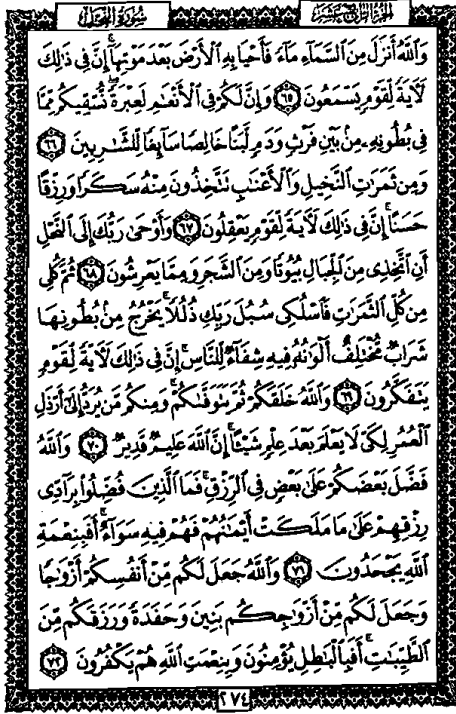 سُورَةُ النَّحۡلِ
الجزء الرابع عشر
وَٱللَّهُ أَنزَلَ مِنَ ٱلسَّمَآءِ مَآءٗ فَأَحۡيَا بِهِ ٱلۡأَرۡضَ بَعۡدَ مَوۡتِهَآۚ إِنَّ فِي ذَٰلِكَ
لَأٓيَةٗ لِّقَوۡمٖ يَسۡمَعُونَ ٦٥ وَإِنَّ لَكُمۡ فِي ٱلۡأَنۡعَٰمِ لَعِبۡرَةٗۖ نُّسۡقِيكُم مِّمَّا
فِي بُطُونِهِۦ مِنۢ بَيۡنِ فَرۡثٖ وَدَمٖ لَّبَنًا خَالِصٗا سَآئِغٗا لِّلشَّٰرِبِينَ ٦٦
وَمِن ثَمَرَٰتِ ٱلنَّخِيلِ وَٱلۡأَعۡنَٰبِ تَتَّخِذُونَ مِنۡهُ سَكَرٗا وَرِزۡقًا
حَسَنًاۚ إِنَّ فِي ذَٰلِكَ لَأٓيَةٗ لِّقَوۡمٖ يَعۡقِلُونَ ٦٧ وَأَوۡحَىٰ رَبُّكَ إِلَى ٱلنَّحۡلِ
أَنِ ٱتَّخِذِي مِنَ ٱلۡجِبَالِ بُيُوتٗا وَمِنَ ٱلشَّجَرِ وَمِمَّا يَعۡرِشُونَ ٦٨ ثُمَّ كُلِي
مِن كُلِّ ٱلثَّمَرَٰتِ فَٱسۡلُكِي سُبُلَ رَبِّكِ ذُلُلٗاۚ يَخۡرُجُ مِنۢ بُطُونِهَا
شَرَابٞ مُّخۡتَلِفٌ أَلۡوَٰنُهُۥ فِيهِ شِفَآءٞ لِّلنَّاسِۚ إِنَّ فِي ذَٰلِكَ لَأٓيَةٗ لِّقَوۡمٖ
يَتَفَكَّرُونَ ٦٩ وَٱللَّهُ خَلَقَكُمۡ ثُمَّ يَتَوَفَّىٰكُمۡۚ وَمِنكُم مَّن يُرَدُّ إِلَىٰٓ أَرۡذَلِ
ٱلۡعُمُرِ لِكَيۡ لَا يَعۡلَمَ بَعۡدَ عِلۡمٖ شَيۡـًٔاۚ إِنَّ ٱللَّهَ عَلِيمٞ قَدِيرٞ ٧٠ وَٱللَّهُ
فَضَّلَ بَعۡضَكُمۡ عَلَىٰ بَعۡضٖ فِي ٱلرِّزۡقِۚ فَمَا ٱلَّذِينَ فُضِّلُواْ بِرَآدِّي
رِزۡقِهِمۡ عَلَىٰ مَا مَلَكَتۡ أَيۡمَٰنُهُمۡ فَهُمۡ فِيهِ سَوَآءٌۚ أَفَبِنِعۡمَةِ
ٱللَّهِ يَجۡحَدُونَ ٧١ وَٱللَّهُ جَعَلَ لَكُم مِّنۡ أَنفُسِكُمۡ أَزۡوَٰجٗا
وَجَعَلَ لَكُم مِّنۡ أَزۡوَٰجِكُم بَنِينَ وَحَفَدَةٗ وَرَزَقَكُم مِّنَ
ٱلطَّيِّبَٰتِۚ أَفَبِٱلۡبَٰطِلِ يُؤۡمِنُونَ وَبِنِعۡمَتِ ٱللَّهِ هُمۡ يَكۡفُرُونَ ٧٢
٢٧٤